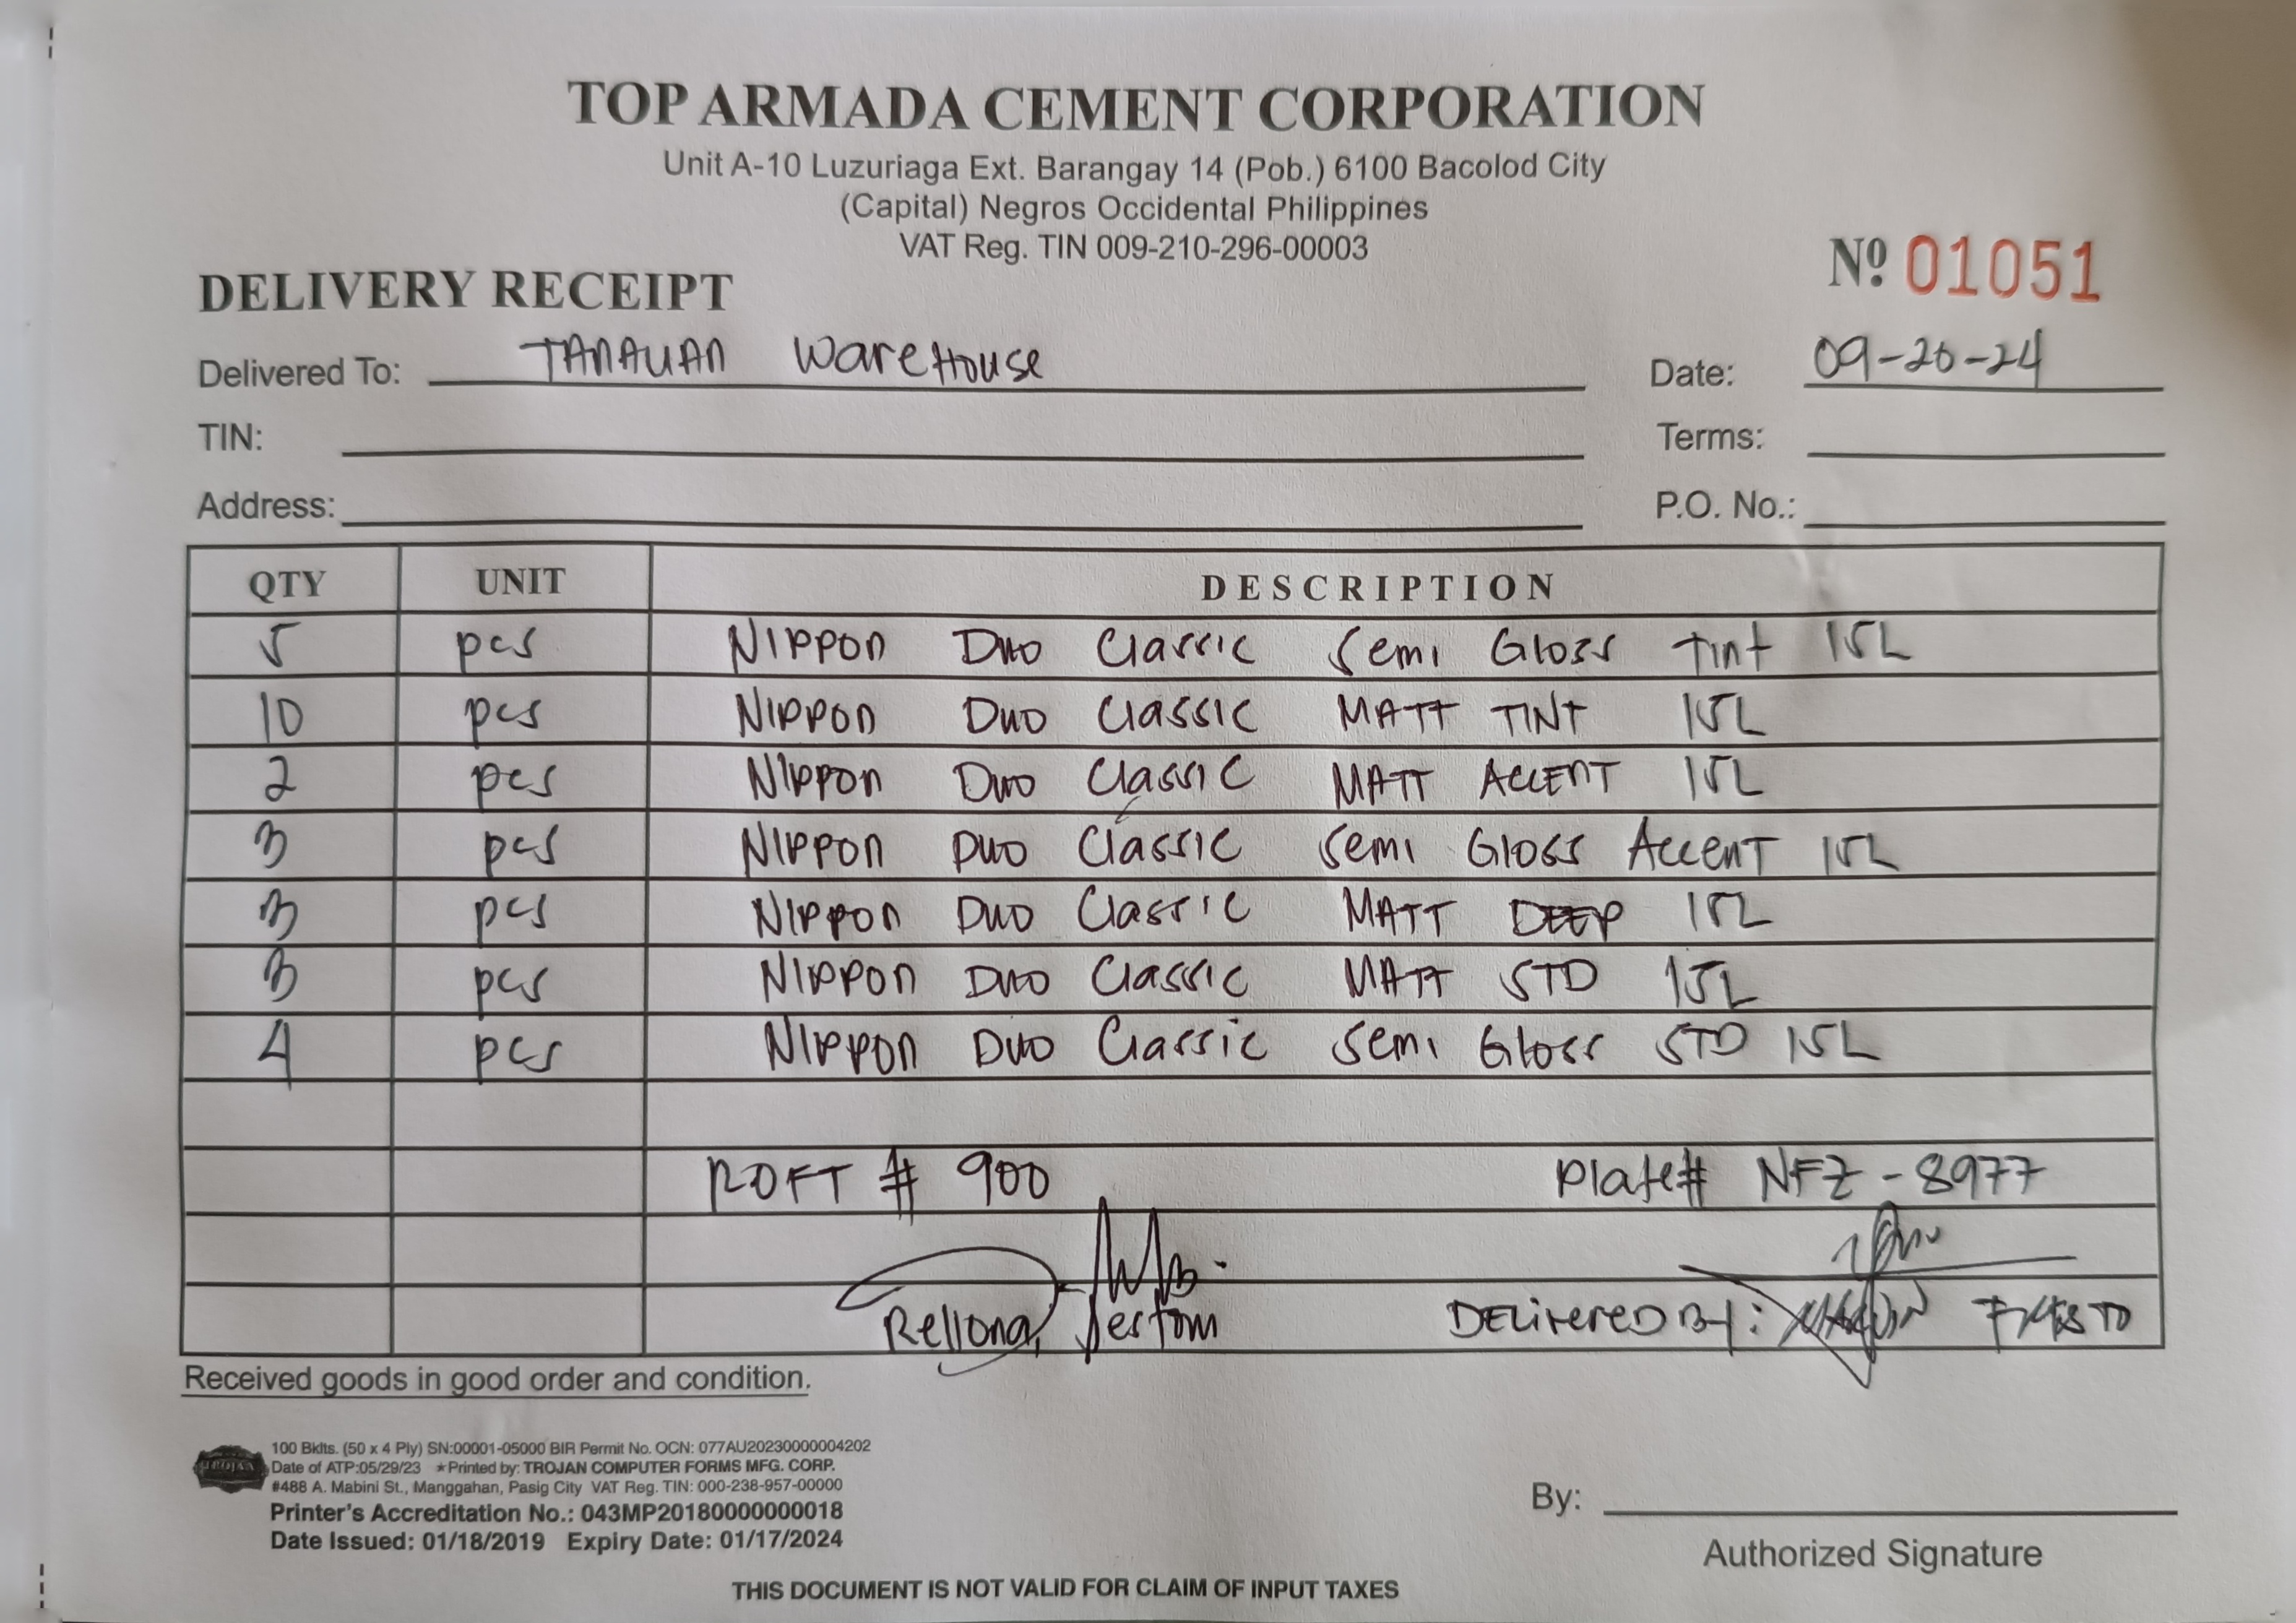 TOP ARMADA CEMENT CORPORATION
Unit A-10 Luzuriaga Ext. Barangay 14 (Pob.) 6100 Bacolod City
(Capital) Negros Occidental Philippines
VAT Reg. TIN 009-210-296-00003
Nº 01051
DELIVERY RECEIPT
Delivered To: TANAUAN WareHouse Date: 09-20-24
TIN: Terms:
Address: P.O. No.:
QTY UNIT DESCRIPTION
5 pcs NIPPON DUO Classic Semi Gloss Tint 15L
10 pcs NIPPON DUO Classic MATT TINT 15L
2 pcs NIPPON DUO Classic MATT ACCENT 15L
3 pcs NIPPON DUO Classic Semi Gloss Accent 15L
3 pcs NIPPON DUO Classic MATT DEEP 15L
3 pcs NIPPON DUO Classic MATT STD 15L
4 pcs NIPPON DUO Classic Semi Gloss STD 15L
ROFT # 900 Plate# NFZ-8977
Rellona, Jestom DELivereD By:
Received goods in good order and condition.
TROJAN
100 Bklts. (50 x 4 Ply) SN:00001-05000 BIR Permit No. OCN: 077AU20230000004202
Date of ATP:05/29/23 ★Printed by: TROJAN COMPUTER FORMS MFG. CORP.
#488 A. Mabini St., Manggahan, Pasig City VAT Reg. TIN: 000-238-957-00000
Printer's Accreditation No.: 043MP20180000000018
Date Issued: 01/18/2019 Expiry Date: 01/17/2024
By:
Authorized Signature
THIS DOCUMENT IS NOT VALID FOR CLAIM OF INPUT TAXES